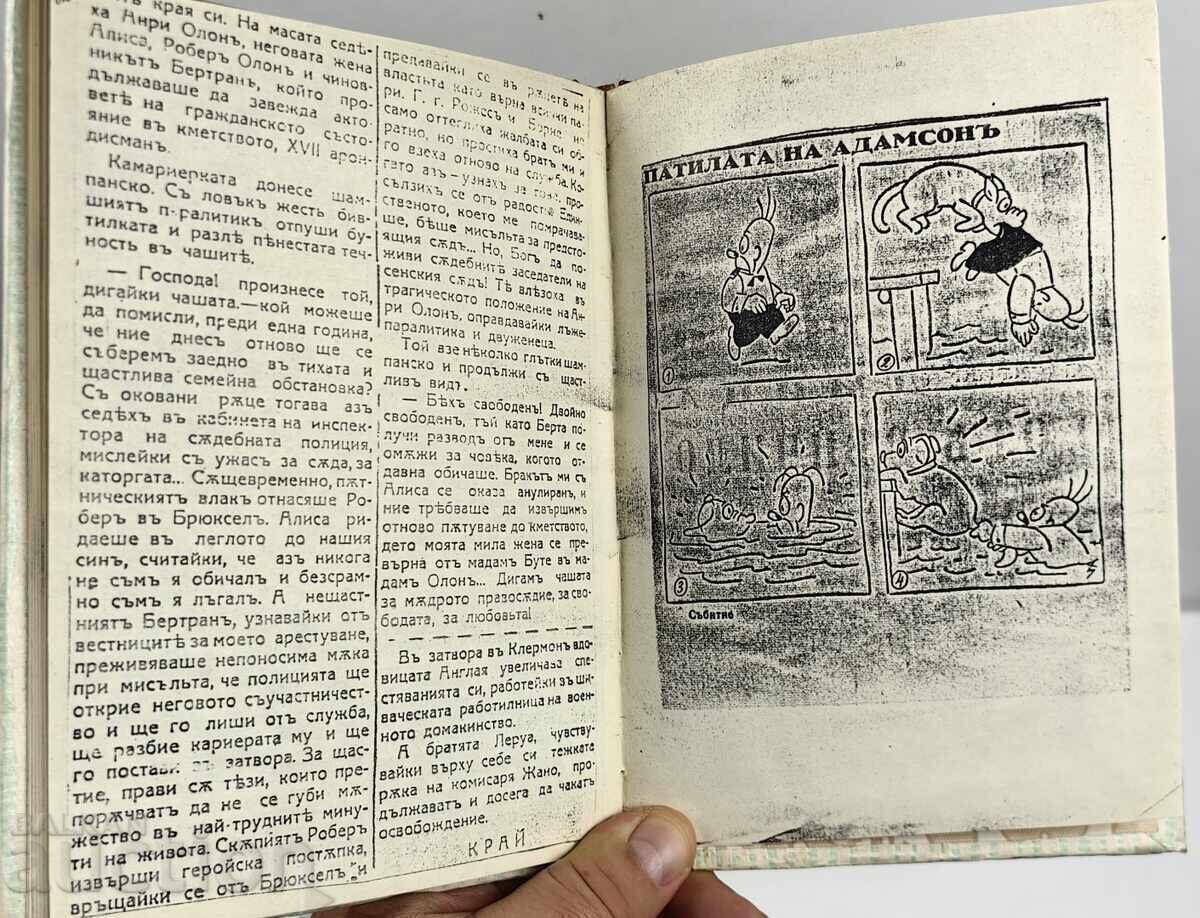 края си. На масата седѣ-
ха Анри Олонъ, неговата жена
Алиса, Роберъ Олонъ и чинов-
никътъ Бертранъ, който про-
дължаваше да завежда акто-
ветѣ на гражданскто състо-
яние въ кметството, XVII арон-
дисманъ.
Камариерката донесе шам-
панско. Съ ловъкъ жестъ бив-
шиятъ паралитикъ отпуши бу-
тилката и разлѣ пѣнестата теч-
ность въ чашитѣ.
— Господа! произнесе той,
дигайки чашата.—кой можеше
да помисли, преди една година,
че ние днесъ отново ще се
съберемъ заедно въ тихата и
щастлива семейна обстановка?
Съ оковани рѫце тогава азъ
седѣхъ въ кабинета на инспек-
тора на сѫдебната полиция,
мислейки съ ужасъ за сѫда, за
каторгата... Сѫщевременно, пѫт-
ническиятъ влакъ отнасяше Ро-
беръ въ Брюкселъ. Алиса ри-
даеше въ леглото до нашия
синъ, считайки, че азъ никога
не съмъ я обичалъ и безсрам-
но съмъ я лъгалъ. А нещаст-
ниятъ Бертранъ, узнавайки отъ
вестницитѣ за моето арестуване,
преживяваше непоносима мѫка
при мисъльта, че полицията ще
открие неговото съучастничест-
во и ще го лиши отъ служба,
ще разбие кариерата му и ще
го постави въ затвора. За щас-
тие, прави сѫ тѣзи, които пре-
порѫчватъ да не се губи мѫ-
жество въ най-труднитѣ мину-
ти на живота. Скѫпиятъ Роберъ
извърши геройска постѫпка,
връщайки се отъ Брюкселъ и
предавайки се въ рѫцетѣ на
властьта като върна всички па-
ри. Г. г. Рожесъ и Верне не
само оттеглиха жалбата си об-
ратно, но простиха братъ ми и
го взеха отново на служба. Ко-
гато азъ узнахъ за това, про-
сълзихъ се отъ радость! Един-
ственото, което ме помрачава-
ше, бѣше мисъльта за предсто-
ящия сѫдъ... Но, Богъ да по-
живи сѫдебнитѣ заседатели на
сенския сѫдъ! Тѣ влѣзоха въ
трагическото положение на Ан-
ри Олонъ, оправдавайки лъже-
паралитика и двуженеца.
Той взе нѣколко глътки шам-
панско и продължи съ щаст-
ливъ видъ.
— Бѣхъ свободенъ! Двойно
свободенъ, тъй като Берта по-
лучи разводъ отъ мене и се
омѫжи за човѣка, когото от-
давна обичаше. Бракътъ ми съ
Алиса се оказа анулиранъ, и
ние трѣбваше да извършимъ
отново пѫтуване до кметството,
дето моята мила жена се пре-
върна отъ мадамъ Буте въ ма-
дамъ Олонъ... Дигамъ чашата
за мѫдрото правосѫдие, за сво-
бодата, за любовьта!
Въ затвора въ Клермонъ вдо-
вицата Англая увеличава спе-
стяванията си, работейки въ ши-
вашеската работилница на воен-
ното домакинство.
А братята Леруа, чувству-
вайки върху себе си тежката
рѫка на комисаря Жано, про-
дължаватъ и досега да чакатъ
освобождение.
КРАЙ
ПАТИЛАТА НА АДАМСОНЪ
1
2
3
4
Събитие